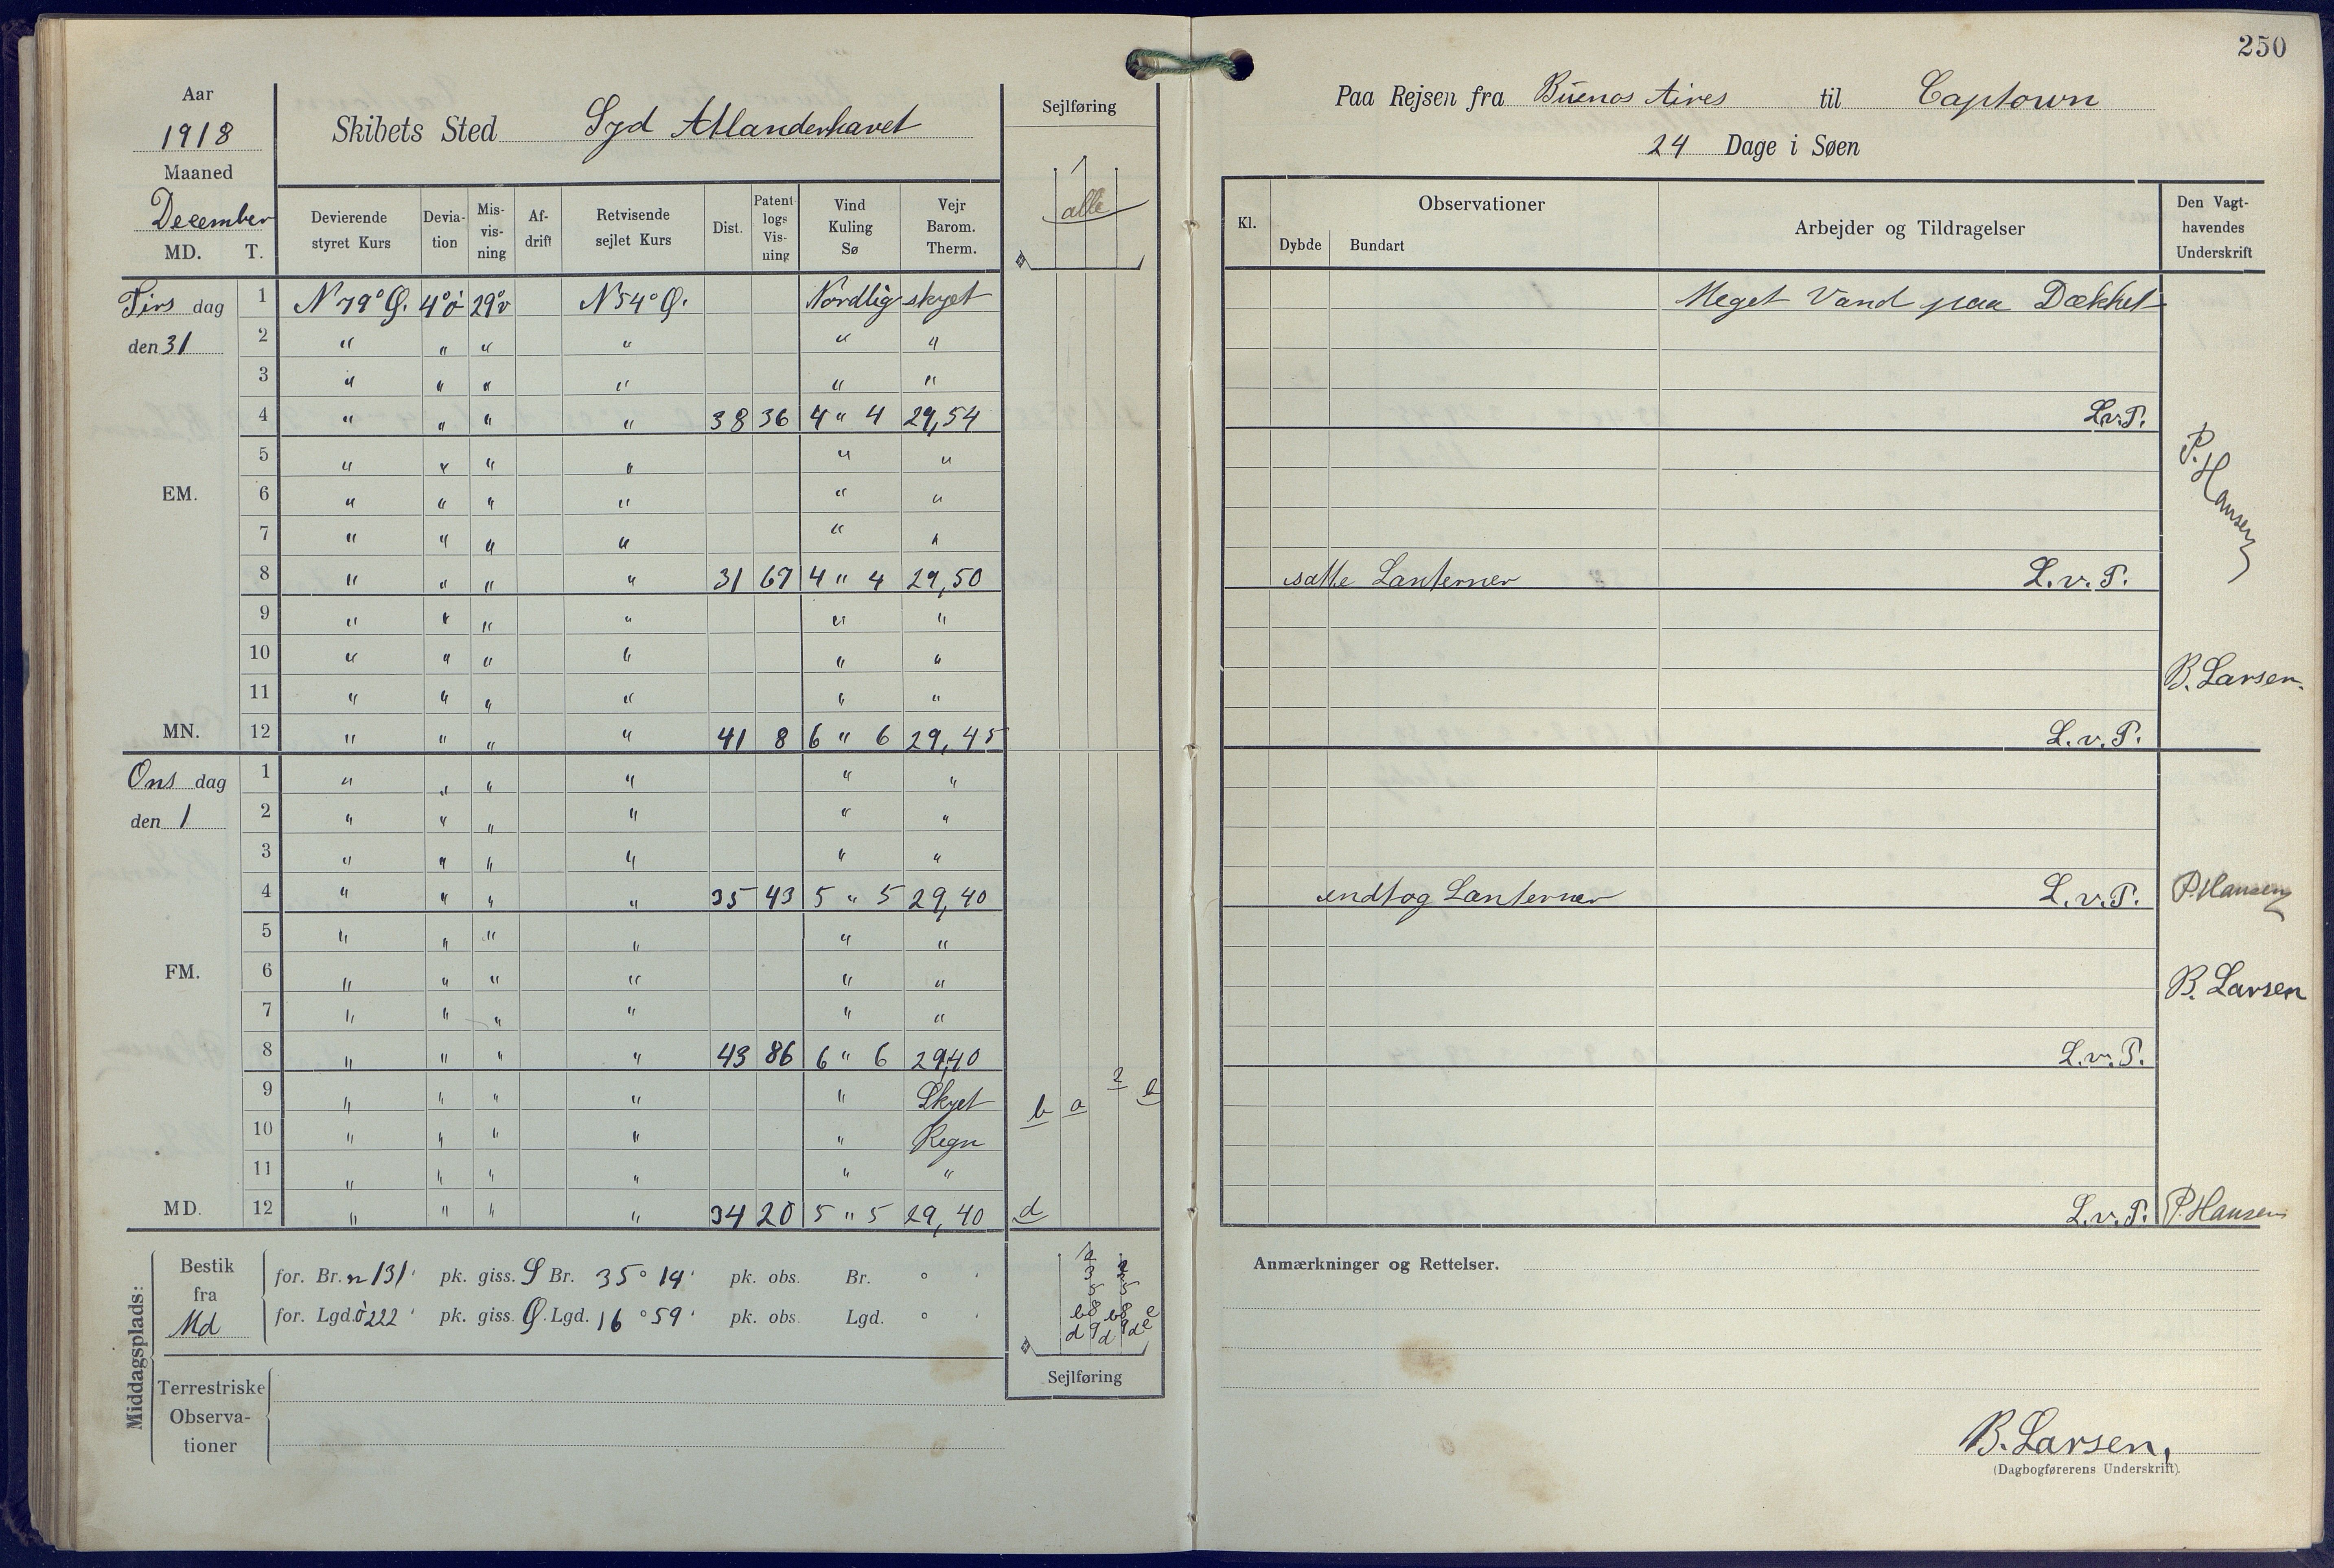 250
Aar
1918
Maaned
December
Skibets Sted Syd Atlanderhavet
Sejlføring
alle
Paa Rejsen fra Buenos Aires til Captown
24 Dage i Søen
MD. T. Devierende styret Kurs Devia-tion Mis-vis-ning Af-drift Retvisende sejlet Kurs Dist. Patent logs Vis-ning Vind Kuling Sø Vejr Barom. Therm.
Kl. Observationer Dybde Bundart Arbejder og Tildragelser Den Vagt-havendes Underskrift
Tirs dag 1 N 79° Ø. 4° ö 29° v N 54° Ø. Nordlig skyet Meget Vand paa Dækket
den 31 2 " " " " " "
3 " " " " " "
4 " " " " 38 36 4 " 4 29,54 L.v.P.
5 " " " " " "
P. Hansen
EM. 6 " " " " " "
7 " " " " " "
8 " " " " 31 67 4 " 4 29,50 satte Lanterner L.v.P.
9 " " " " " "
10 " " " " " "
B. Larsen.
11 " " " " " "
MN. 12 " " " " 41 8 6 " 6 29,45 L.v.P.
Ons dag 1 " " " " " "
den 1 2 " " " " " "
3 " " " " " "
4 " " " " 35 43 5 " 5 29,40 indtog Lanterner L.v.P. P. Hansen
5 " " " " " "
FM. 6 " " " " " " B. Larsen
7 " " " " " "
8 " " " " 43 86 6 " 6 29,40 L.v.P.
9 " " " " " Skyet b a 2 e
10 " " " " " Regn
11 " " " " " "
MD. 12 " " " " 34 20 5 " 5 29,40 d L.v.P. P. Hansen
Middagsplads:
Bestik fra Md
for. Br. n 131' pk. giss. S Br. 35° 14' pk. obs. Br. ° '
for. Lgd. ö 222' pk. giss. Ø. Lgd. 16° 59' pk. obs. Lgd. ° '
Sejlføring
Terrestriske
Observa-
tioner
Anmærkninger og Rettelser.
B. Larsen,
(Dagbogførerens Underskrift).